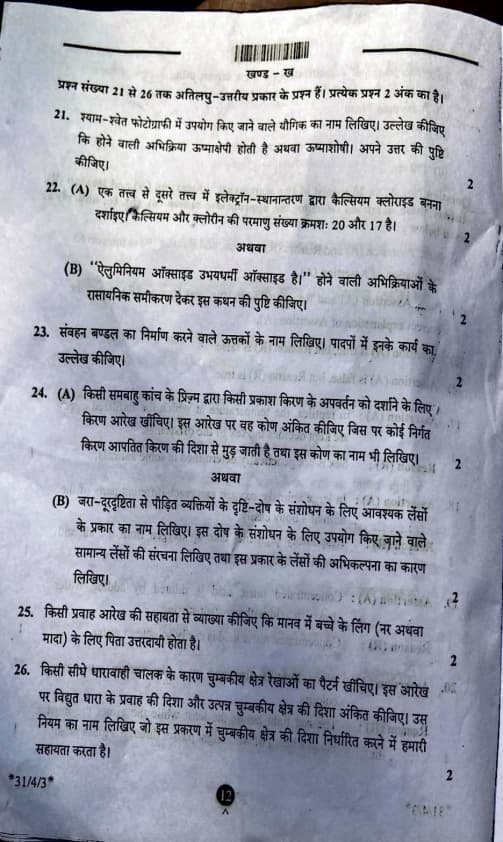 खण्ड – ख
प्रश्न संख्या 21 से 26 तक अतिलघु-उत्तरीय प्रकार के प्रश्न हैं। प्रत्येक प्रश्न 2 अंक का है।
21. श्याम-श्वेत फोटोग्राफी में उपयोग किए जाने वाले यौगिक का नाम लिखिए। उल्लेख कीजिए
कि होने वाली अभिक्रिया ऊष्माक्षेपी होती है अथवा ऊष्माशोषी। अपने उत्तर की पुष्टि
कीजिए। 2
22. (A) एक तत्त्व से दूसरे तत्त्व में इलेक्ट्रॉन-स्थानान्तरण द्वारा कैल्सियम क्लोराइड बनना
दर्शाइए। कैल्सियम और क्लोरीन की परमाणु संख्या क्रमशः 20 और 17 है। 2
अथवा
(B) “ऐलुमिनियम ऑक्साइड उभयधर्मी ऑक्साइड है।” होने वाली अभिक्रियाओं के
रासायनिक समीकरण देकर इस कथन की पुष्टि कीजिए। 2
23. संवहन बण्डल का निर्माण करने वाले ऊत्तकों के नाम लिखिए। पादपों में इनके कार्य का
उल्लेख कीजिए। 2
24. (A) किसी समबाहु कांच के प्रिज़्म द्वारा किसी प्रकाश किरण के अपवर्तन को दर्शाने के लिए
किरण आरेख खींचिए। इस आरेख पर वह कोण अंकित कीजिए जिस पर कोई निर्गत
किरण आपतित किरण की दिशा से मुड़ जाती है तथा इस कोण का नाम भी लिखिए। 2
अथवा
(B) जरा-दूरदृष्टिता से पीड़ित व्यक्तियों के दृष्टि-दोष के संशोधन के लिए आवश्यक लेंसों
के प्रकार का नाम लिखिए। इस दोष के संशोधन के लिए उपयोग किए जाने वाले
सामान्य लेंसों की संरचना लिखिए तथा इस प्रकार के लेंसों की अभिकल्पना का कारण
लिखिए। 2
25. किसी प्रवाह आरेख की सहायता से व्याख्या कीजिए कि मानव में बच्चे के लिंग (नर अथवा
मादा) के लिए पिता उत्तरदायी होता है। 2
26. किसी सीधे धारावाही चालक के कारण चुम्बकीय क्षेत्र रेखाओं का पैटर्न खींचिए। इस आरेख
पर विद्युत धारा के प्रवाह की दिशा और उत्पन्न चुम्बकीय क्षेत्र की दिशा अंकित कीजिए। उस
नियम का नाम लिखिए जो इस प्रकरण में चुम्बकीय क्षेत्र की दिशा निर्धारित करने में हमारी
सहायता करता है। 2
*31/4/3* 12